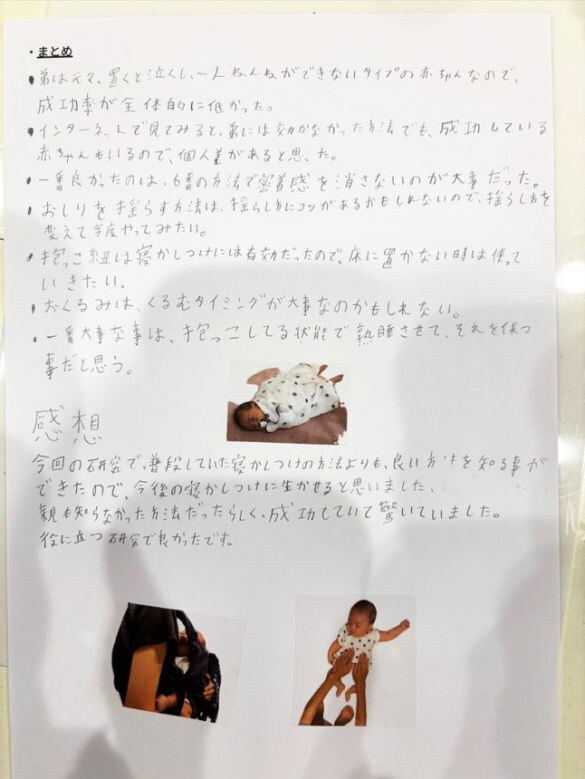 ・まとめ
・弟は元々、置くと泣くし、一人ねんねができないタイプの赤ちゃんなので、
成功率が全体的に低かった。
・インターネットで見てみると、弟には効かなかった方法でも、成功している
赤ちゃんもいるので、個人差があると思った。
・一番良かったのは、6番の方法で密着感を消さないのが大事だった。
・おしりを揺らす方法は、揺らし方にコツがあるかもしれないので、揺らし方を
変えて今度やってみたい。
・抱っこ紐は寝かしつけには有効だったので、床に置かない時は使って
いきたい。
・おくるみは、くるむタイミングが大事なのかもしれない。
・一番大事な事は、抱っこしてる状態で熟睡させて、それを保つ
事だと思う。
感想
今回の研究で、普段していた寝かしつけの方法よりも、良い方法を知る事が
できたので、今後の寝かしつけに生かせると思いました。
親も知らなかった方法だったらしく、成功していて驚いていました。
役に立つ研究で良かったです。